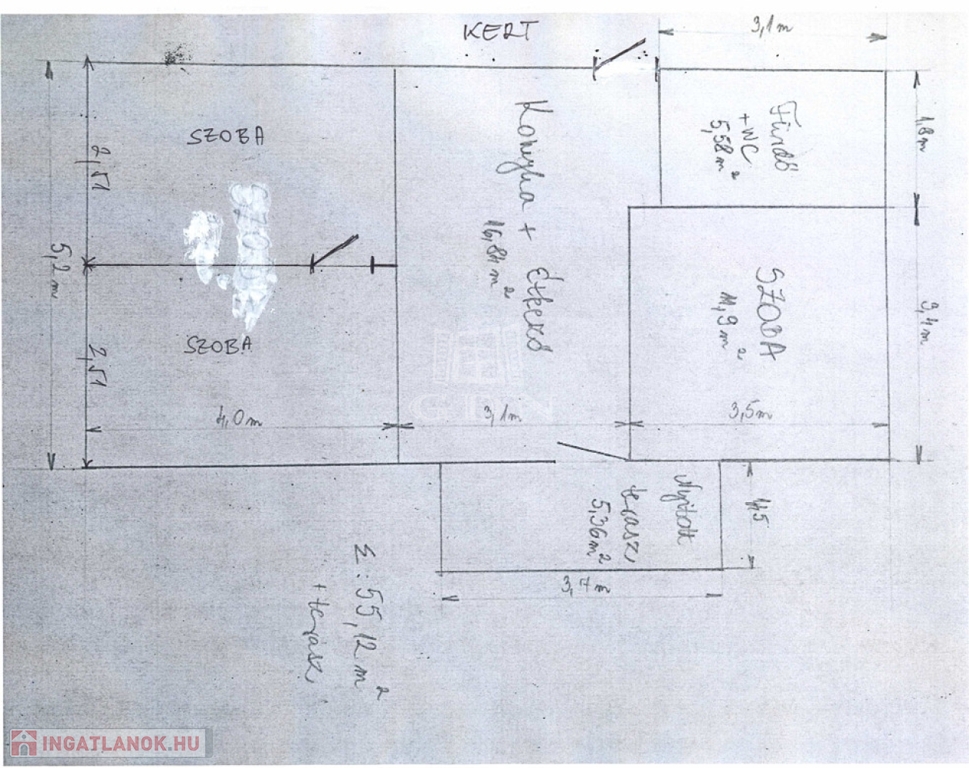 KERT
3,1m
SZOBA
2,51
5,2m
SZOBA
2,51
4,0m
Konyha + Étkező
16,84m²
3,1m
Fürdő
+ WC
5,58m²
1,8m
SZOBA
11,9m²
3,4m
3,5m
Nyitott
terasz
5,36m²
1,45
3,7m
Σ: 55,12m²
+ terasz
CDN
INGATLANOK.HU